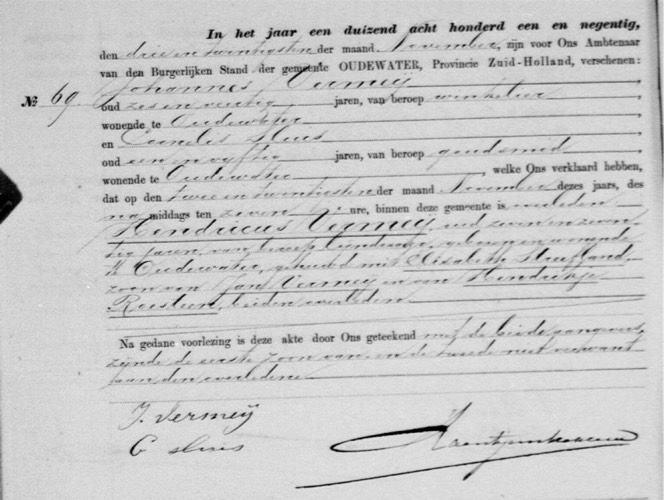 In het jaar een duizend acht honderd een en negentig,
den drie en twintigsten der maand November, zijn voor Ons Ambtenaar
van den Burgerlijken Stand der gemeente OUDEWATER, Provincie Zuid-Holland, verschenen:
№ 69. Johannes Vermeij
oud zes en veertig jaren, van beroep winkelier
wonende te Oudewater
en Cornelis Sluis
oud een en vijftig jaren, van beroep goudsmid
wonende te Oudewater, welke Ons verklaard hebben,
dat op den twee en twintigsten der maand November dezes jaars, des
na middags ten zeven ure, binnen deze gemeente is overleden
Hendricus Vermeij oud zeven en zeven-
tig jaren, van beroep, geboren en wonende
te Oudewater, gehuwd met Elisabeth
zoon van Jan Vermeij en van Hendrikje
beiden overleden
Na gedane voorlezing is deze akte door Ons geteekend met de beide aangevers,
zijnde de eerste zoon van en de tweede niet verwant
aan den overledene
J. Vermeij
C Sluis